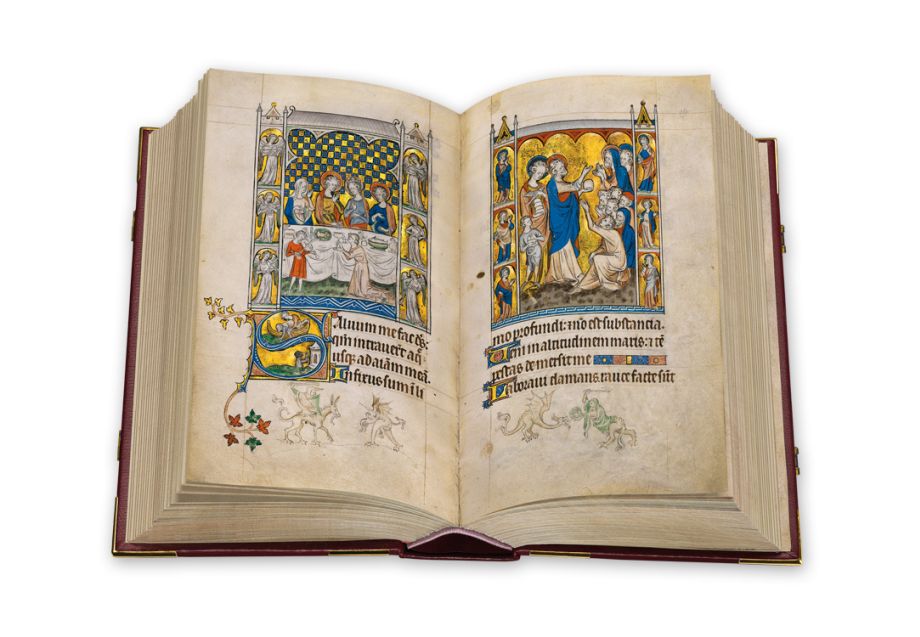 Saluum me fac ds̅:
qm̅ intrauer̅t aq̅
usq̅ ad aīam meā.
Infixus sum ī li
mo profundi: ⁊ nō est substancia.
Ueni in altitudinem maris: ⁊ tē
pestas demersit me
Laboraui clamans. rauce facte sūt